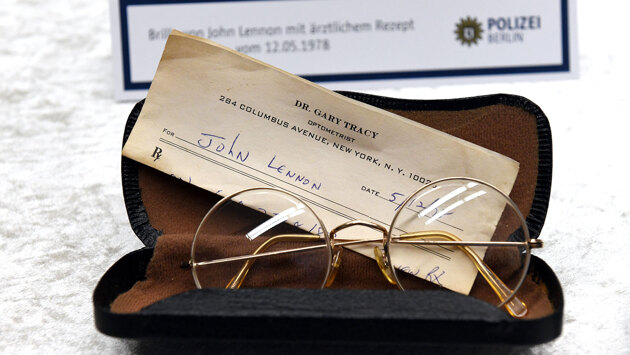 Brille von John Lennon mit ärztlichem Rezept
vom 12.05.1978
POLIZEI
BERLIN
DR. GARY TRACY
OPTOMETRIST
284 COLUMBUS AVENUE, NEW YORK, N. Y. 1002
FOR JOHN LENNON
DATE 5/12
Rx